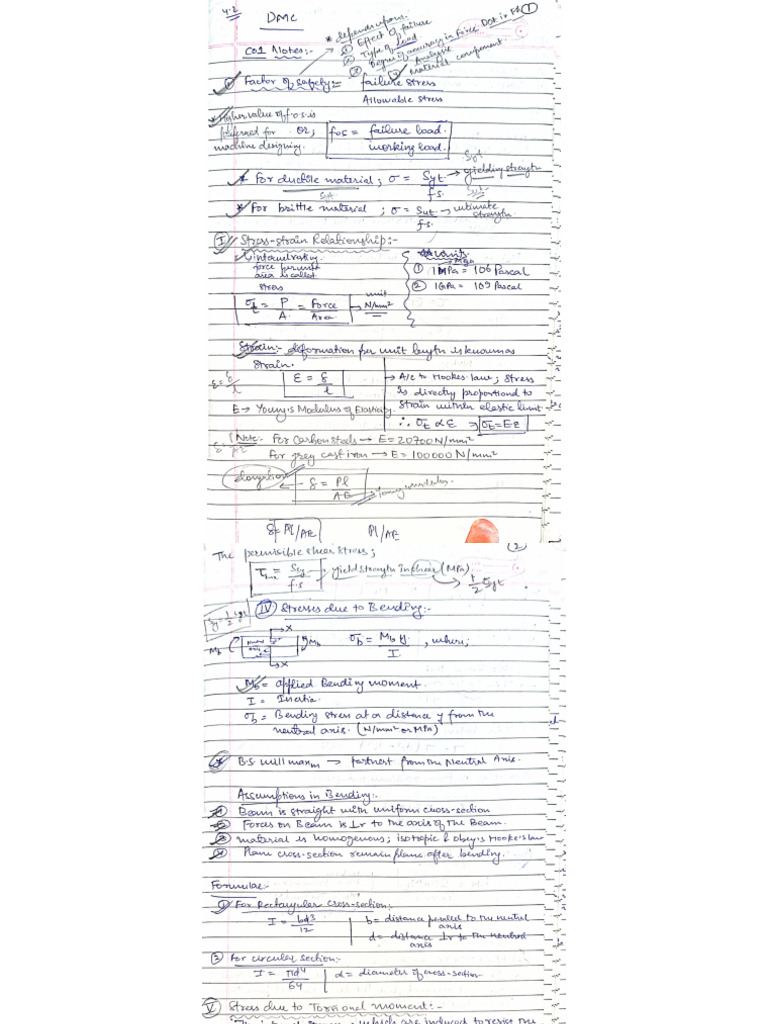 4.2
DMC
1
* depends upon:
① Effect of failure
② Type of Load
③ Degree of accuracy in Force
Analysis
④ Material component
CO1 Notes:-
① Factor of safety = failure stress
Allowable stress
* Higher value of f.o.s. is
preferred for
machine designing.
or; fos = failure load
working load
* For ductile material; σ = Syt → yielding strength
f.s.
* For brittle material; σ = Sut → ultimate strength
f.s.
I Stress-strain Relationship:-
internal resisting
force per unit
area is called
stress
Units
① 1 MPa = 106 Pascal
② 1 GPa = 109 Pascal
σt = P/A = Force/Area → unit N/mm²
Strain:- deformation per unit length is known as
strain.
ε = δ/l
ε = δ/l
→ A/c to Hooke's law; stress
is directly proportional to
strain within elastic limit
∴ σt ∝ ε ⇒ σt = Eε
E → Young's Modulus of Elasticity.
Note: For Carbon steels → E = 20700 N/mm²
For grey cast iron → E = 100000 N/mm²
elongation ← δ = Pl/AE → Young modulus
δ = Pl/AE Pl/AE
(2)
The permissible shear stress;
τ = Ssy/f.s → yield strength in shear (MPa)
→ 1/2 Syt
IV Stresses due to Bending:-
Mb X X Mb
σb = Mb y/I , where;
Mb = applied Bending moment.
I = Inertia.
σb = Bending stress at a distance y from the
neutral axis. (N/mm² or MPa)
* B.S will maxm → farthest from the Neutral Axis.
Assumptions in Bending:-
① Beam is straight with uniform cross-section
② Forces on Beam is ⊥r to the axis of the Beam.
③ material is homogenous; isotropic & obey's Hooke's law
④ Plane cross-section remain plane after bending.
Formulae:-
① For Rectangular cross-section:-
I = bd3/12
b = distance parallel to the neutral
axis
d = distance ⊥r to the neutral
axis
② For circular section:-
I = πd4/64
d = diameter of cross-section
V Stress due to Torsional moment:-
which are induced to resist the